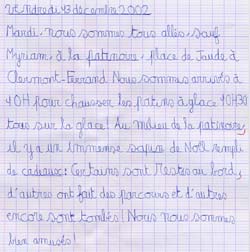 Vendredi 13 décembre 2002
Mardi. nous sommes tous allés, sauf
Myriam, à la patinoire, place de Jaude à
Clermont-Ferrand Nous sommes arrivés à
10H pour chausser les patins à glace 10H30
tous sur la glace! Au milieu de la patinoire,
il y a un immense sapin de Noël rempli
de cadeaux: Certains sont restés au bord,
d'autres ont fait des parcours et d'autres
encore sont tombés! Nous nous sommes
bien amusés!